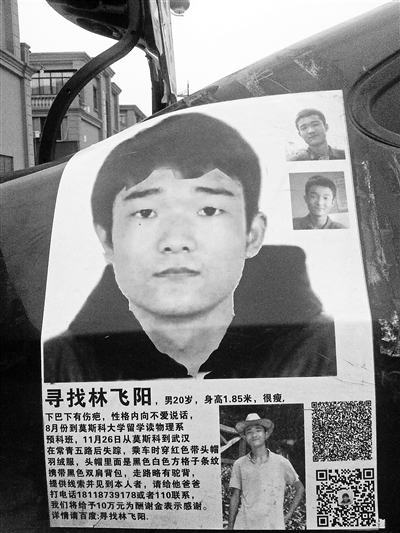 寻找林飞阳，男20岁，身高1.85米，很瘦，
下巴下有伤疤，性格内向不爱说话，
8月份到莫斯科大学留学读物理系
预科班，11月26日从莫斯科到武汉
在常青五路后失踪，乘车时穿红色带头帽
羽绒服，头帽里面是黑色白色方格子条纹
携带黑色双肩背包，走路略有驼背，
提供线索并见到本人者，请给他爸爸
打电话18118739178或者110联系，
我们将给予10万元为酬金表示感谢。
详情请百度:寻找林飞阳.